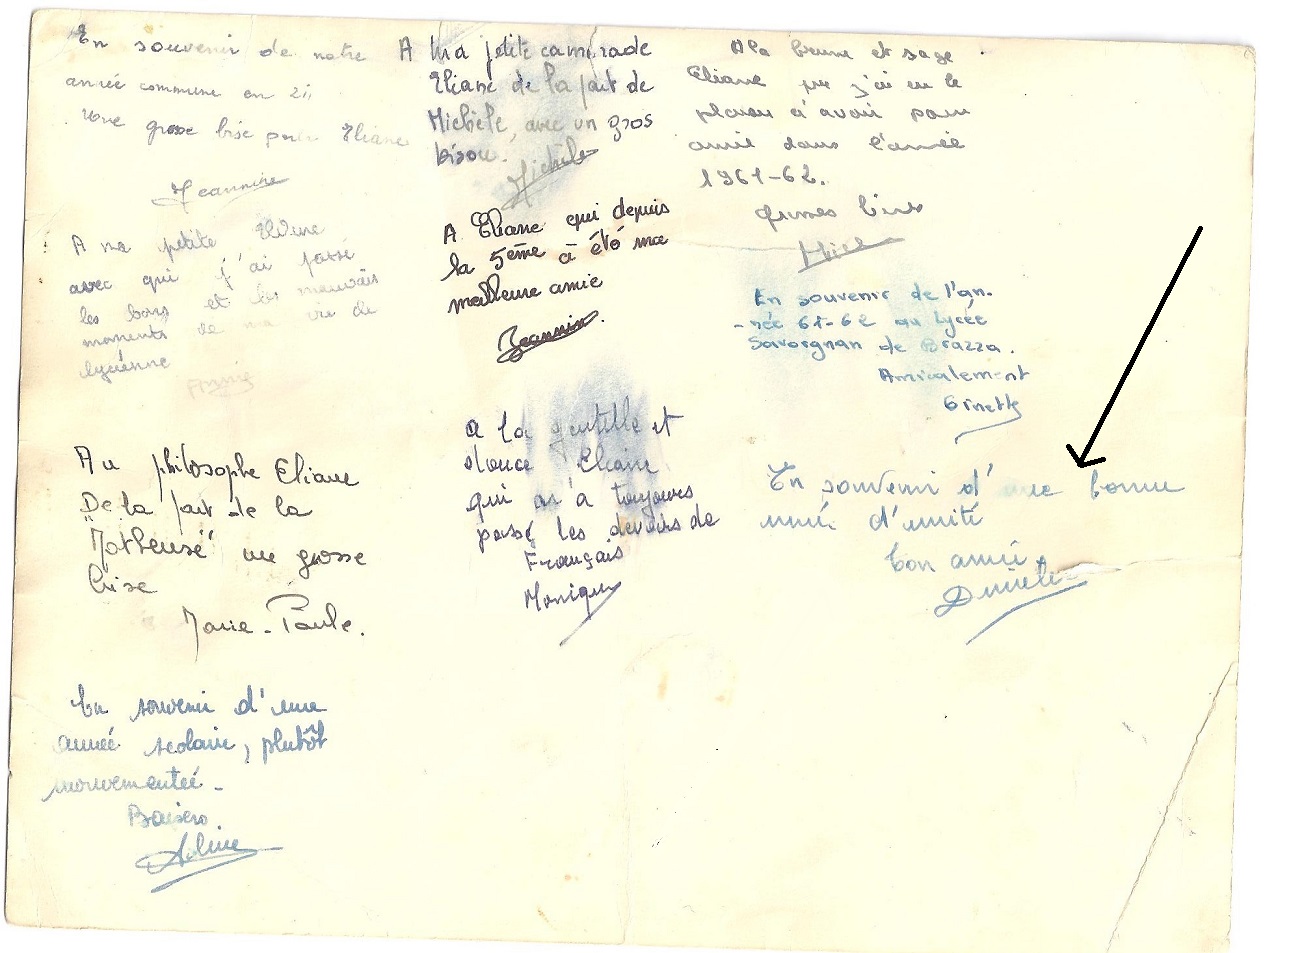 En souvenir de notre
année commune en 2è
Une grosse bise pour Eliane
Jeannine
A ma petite Eliane
avec qui j'ai passé
les bons et les mauvais
moments de ma vie de
lycéenne
A Ma petite camarade
Eliane de la part de
Michèle, avec un gros
bisou.
Michèle
A Eliane qui depuis
la 5ème à été ma
meilleure amie
Jeannine.
A la brune et sage
Eliane que j'ai eu le
plaisir d'avoir pour
amie dans l'année
1961-62.
grosses bises
En souvenir de l'an.
-née 61-62 au lycée
Savorgnan de Brazza.
Amicalement
Ginette
Au philosophe Eliane
De la part de la
"Matheuse" une grosse
bise
Marie-Paule.
A la gentille et
douce Eliane
qui m'a toujours
passé les devoirs de
Français
Monique
En souvenir d'une bonne
année d'amitié
ton amie,
Danièle
En souvenir d'une
année scolaire, plutôt
mouvementée.
Baisers
Aline